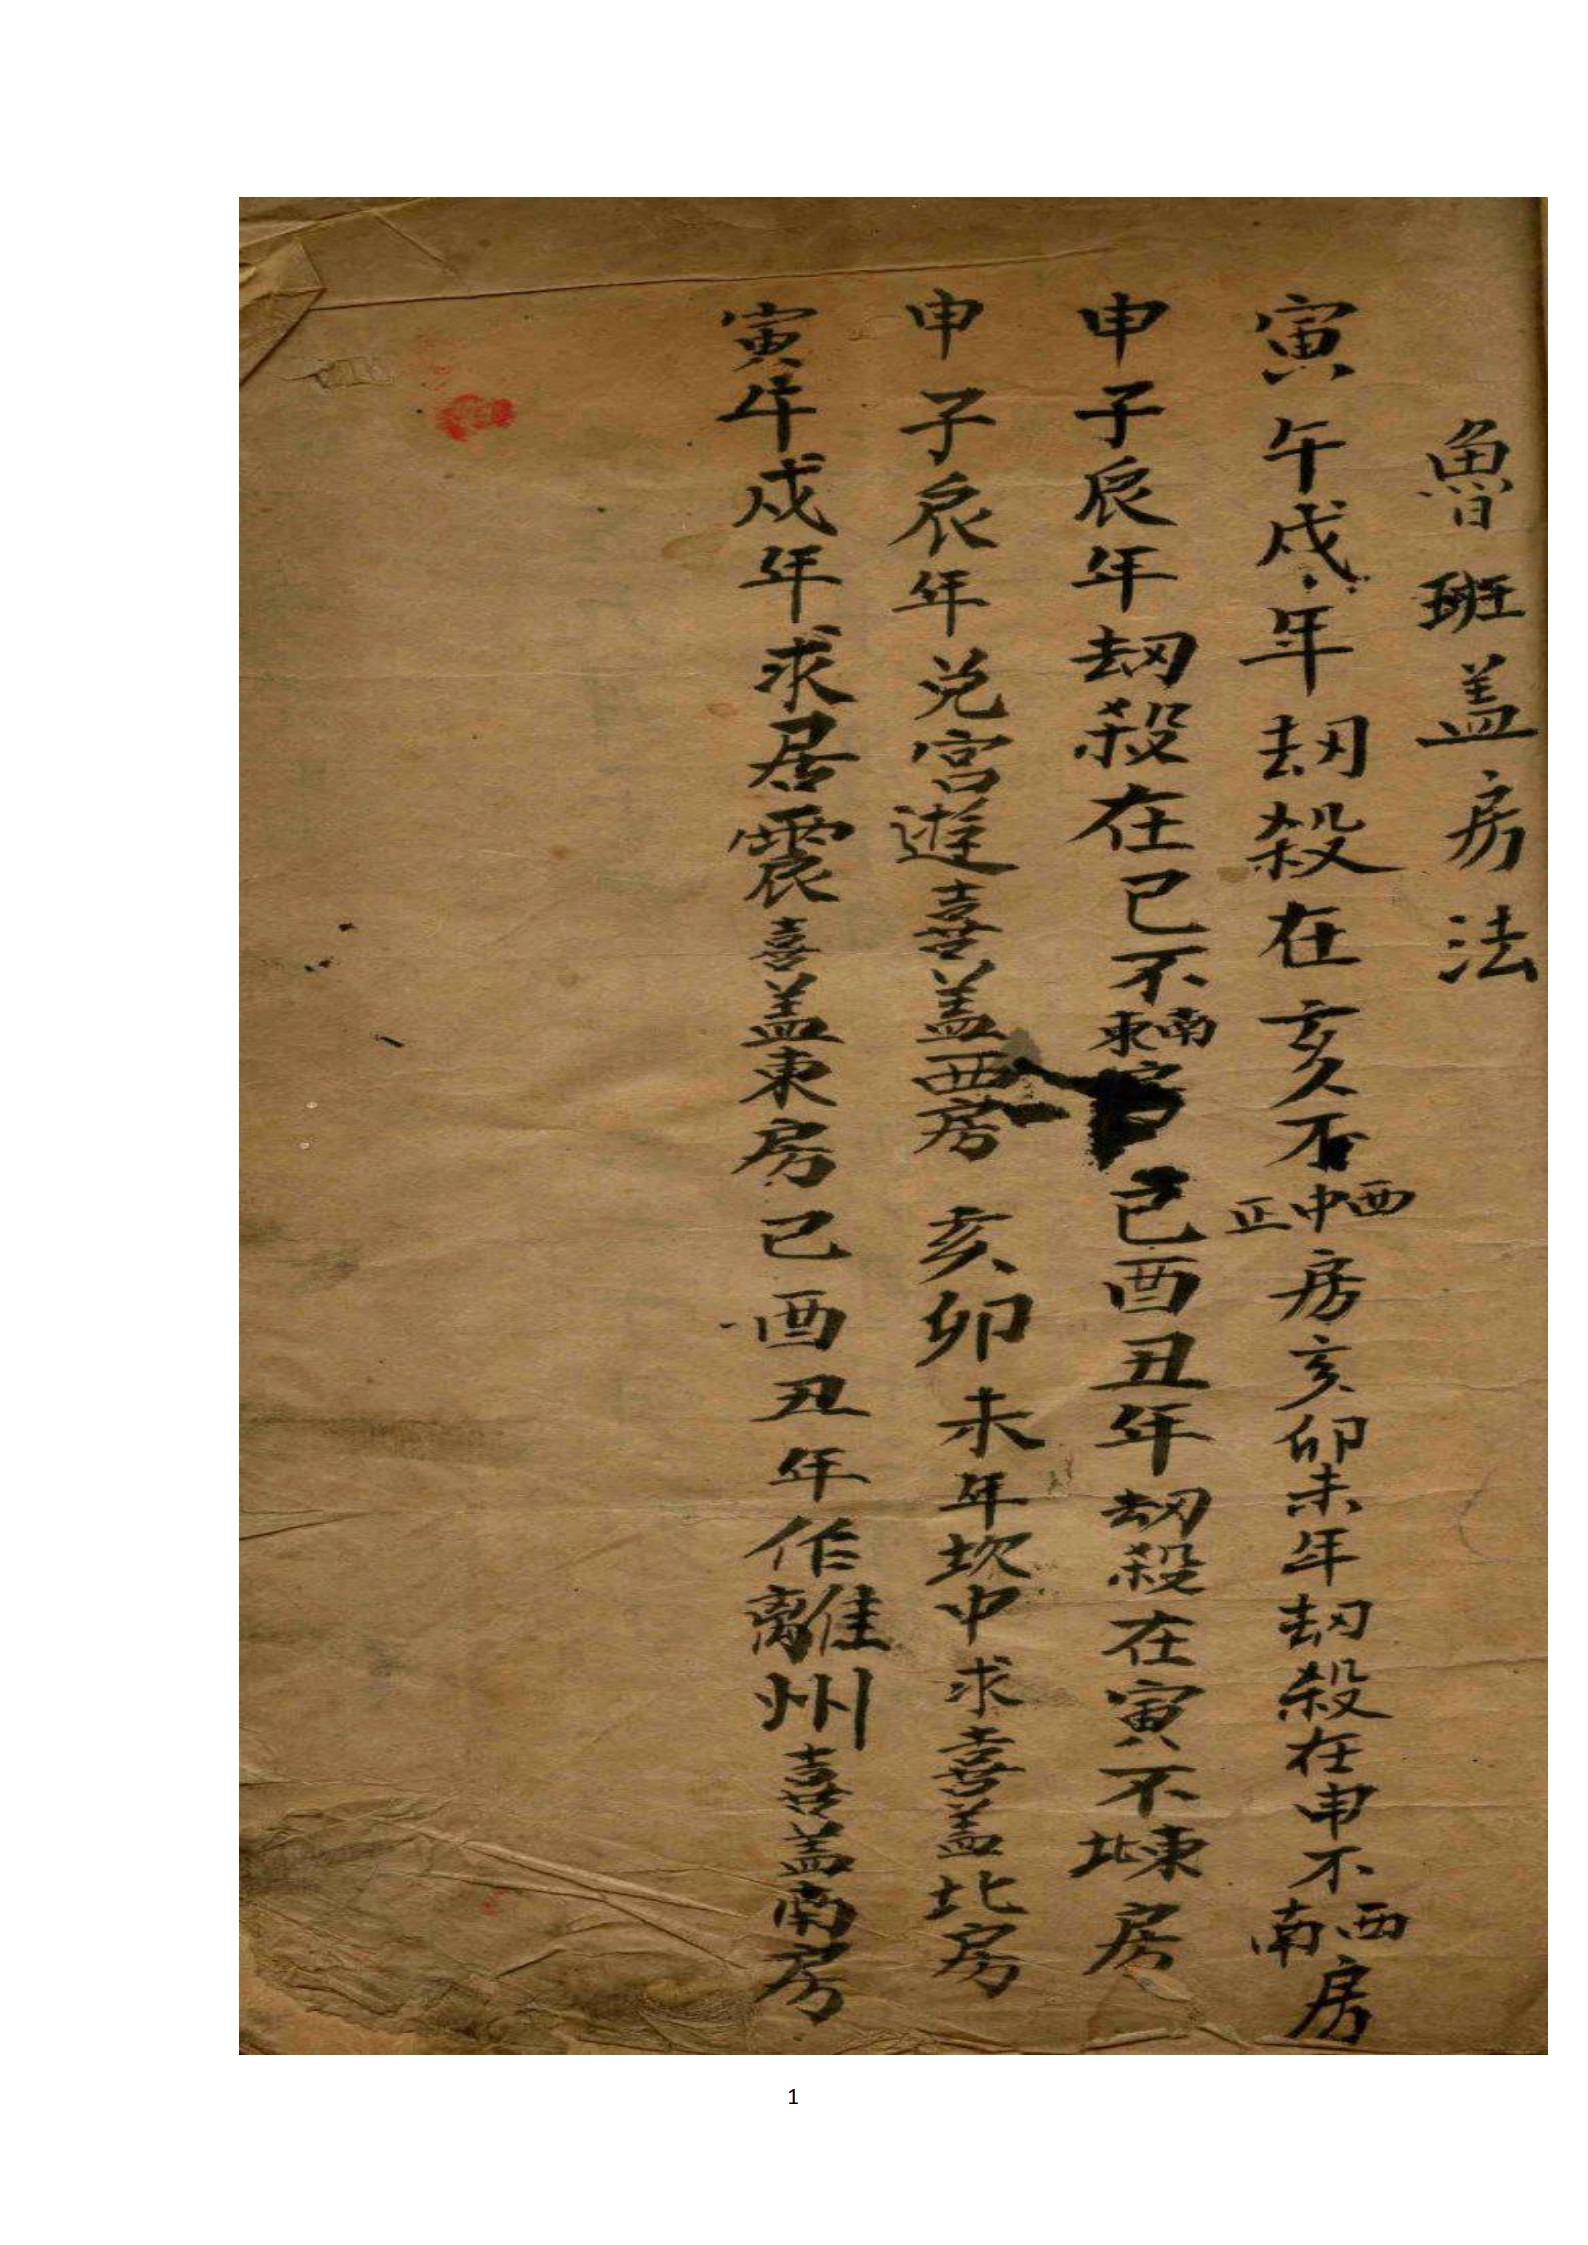 魯班盖房法
寅午戍年刼殺在亥不西中正房亥卯未年刼殺在申不西南房
申子辰年刼殺在已不南東房已酉丑年刼殺在寅不東北房
申子辰年兑宮遊喜盖西房亥卯未年坎中求喜盖北房
寅午戍年求居震喜盖東房已酉丑年作離州喜盖南房
1